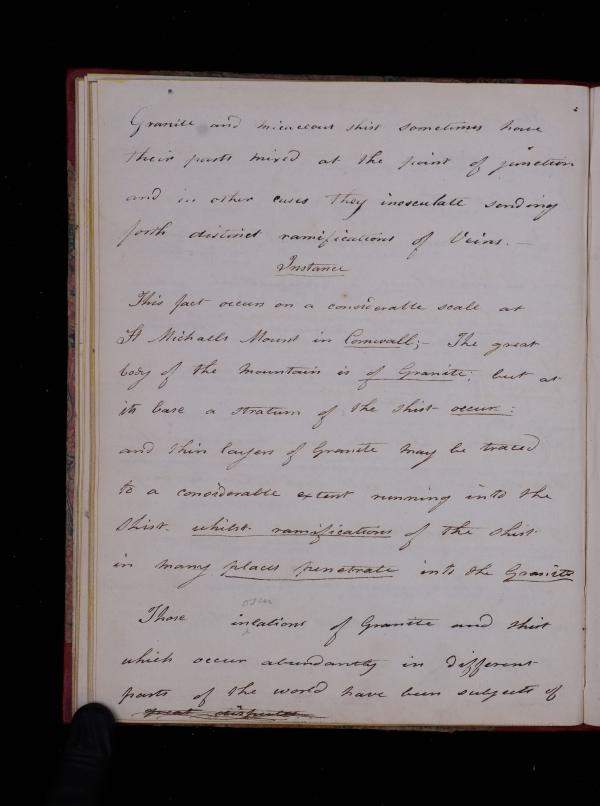 Granite and micaceous shist sometimes have
their parts mixed at the point of junction
and in other cases they inosculate sending
forth distinct ramifications of Veins. —
Instance
This fact occurs on a considerable scale at
St Michaels Mount in Cornwall;- The great
body of the mountain is of Granite; but at
its base a stratum of the shist occur:
and thin layers of Granite may be traced
to a considerable extent running into the
shist whilst ramifications of the shist
in many places penetrate into the Granite
oscu
Those inlations of Granite and shist
which occur abundantly in different
parts of the world have been subjects of
great disputes